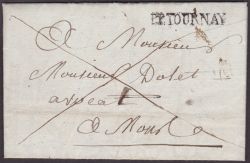 TOURNAY
A Monsieur
Monsieur Dolet
avocat
A Mons